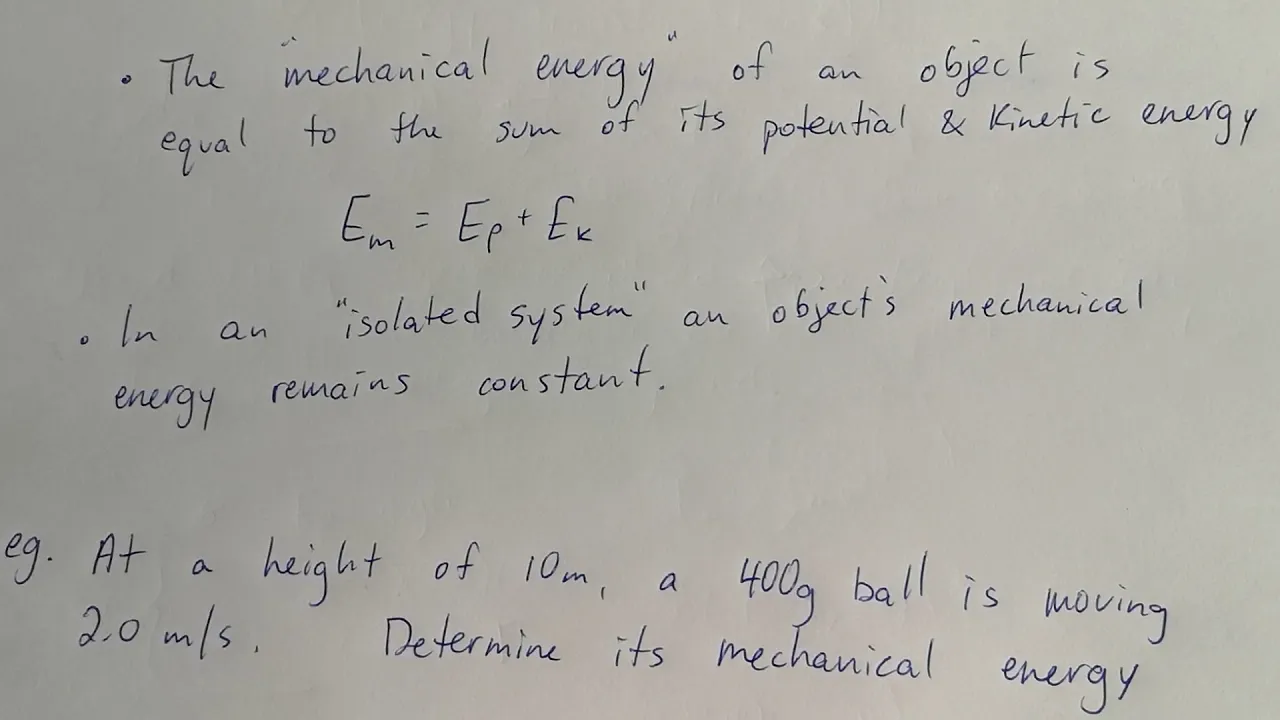 • The "mechanical energy" of an object is
equal to the sum of its potential & Kinetic energy
Em = Ep + Ek
• In an "isolated system" an object's mechanical
energy remains constant.
eg. At a height of 10m, a 400g ball is moving
2.0 m/s. Determine its mechanical energy